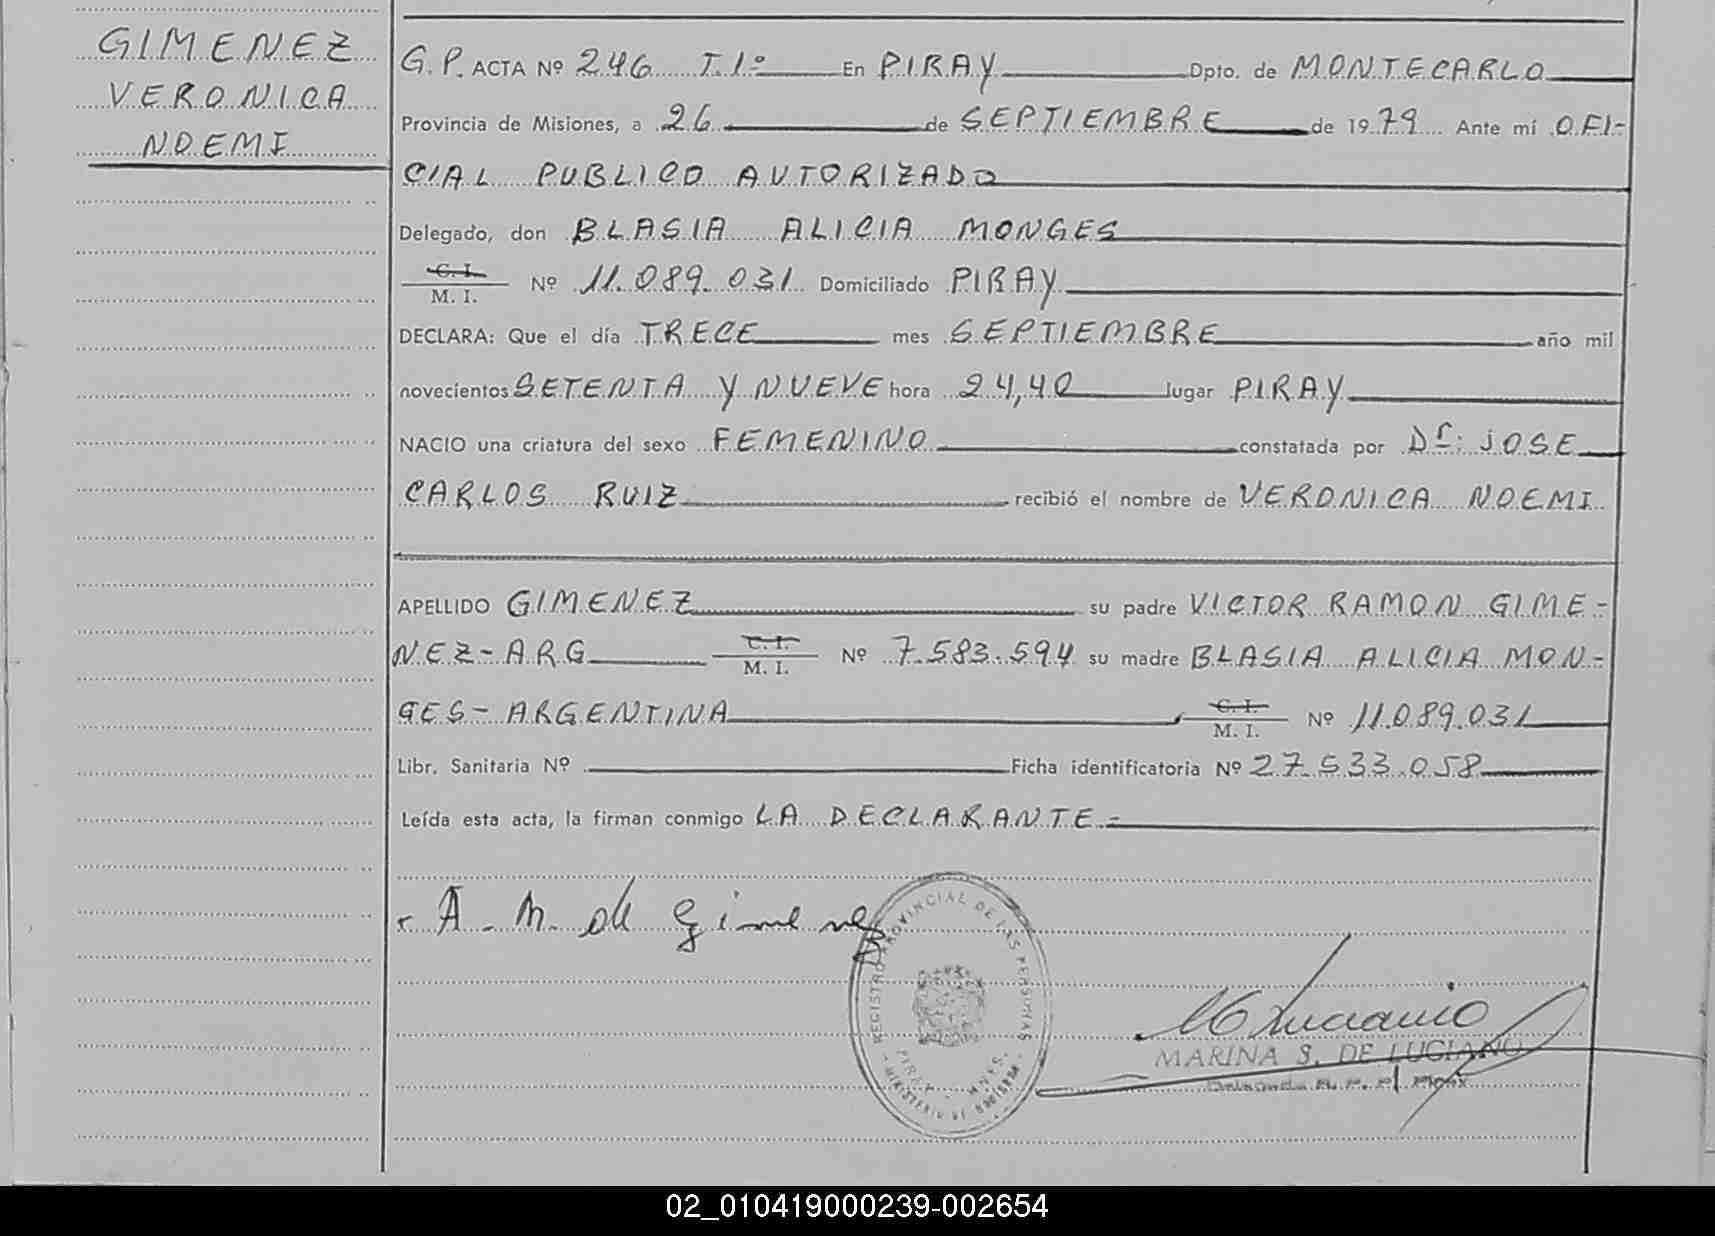 GIMENEZ
VERONICA
NOEMI
G.P. ACTA Nº 246 T.1º En PIRAY Dpto. de MONTECARLO
Provincia de Misiones, a 26 de SEPTIEMBRE de 1979 Ante mí OFI-
CIAL PUBLICO AUTORIZADO
Delegado, don BLASIA ALICIA MONGES
C. I.
M. I. Nº 11.089.031 Domiciliado PIRAY
DECLARA: Que el día TRECE mes SEPTIEMBRE año mil
novecientos SETENTA Y NUEVE hora 24,40 lugar PIRAY
NACIO una criatura del sexo FEMENINO constatada por Dr: JOSE
CARLOS RUIZ recibió el nombre de VERONICA NOEMI
APELLIDO GIMENEZ su padre VICTOR RAMON GIME-
NEZ-ARG C. I. M. I. Nº 7.583.594 su madre BLASIA ALICIA MON-
GES- ARGENTINA C. I. M. I. Nº 11.089.031
Libr. Sanitaria Nº Ficha identificatoria Nº 27.533.058
Leída esta acta, la firman conmigo LA DECLARANTE.=
A. M. de Gimenez
REGISTRO PROVINCIAL DE LAS PERSONAS
PIRAY - MNES.
MINISTERIO DE GOBIERNO
M Luciano
MARINA S. DE LUCIANO
02_010419000239-002654